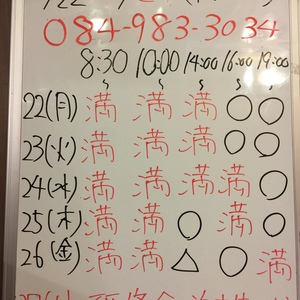 084-983-3034
8:30 10:00 14:00 16:00 19:00
〜 〜 〜 〜 〜
22(月) 満 満 満 ○ ○
23(火) 満 満 満 ○ ○
24(水) 満 満 満 満 ○
25(木) 満 満 ○ 満 ○
26(金) 満 満 △ ○ 満